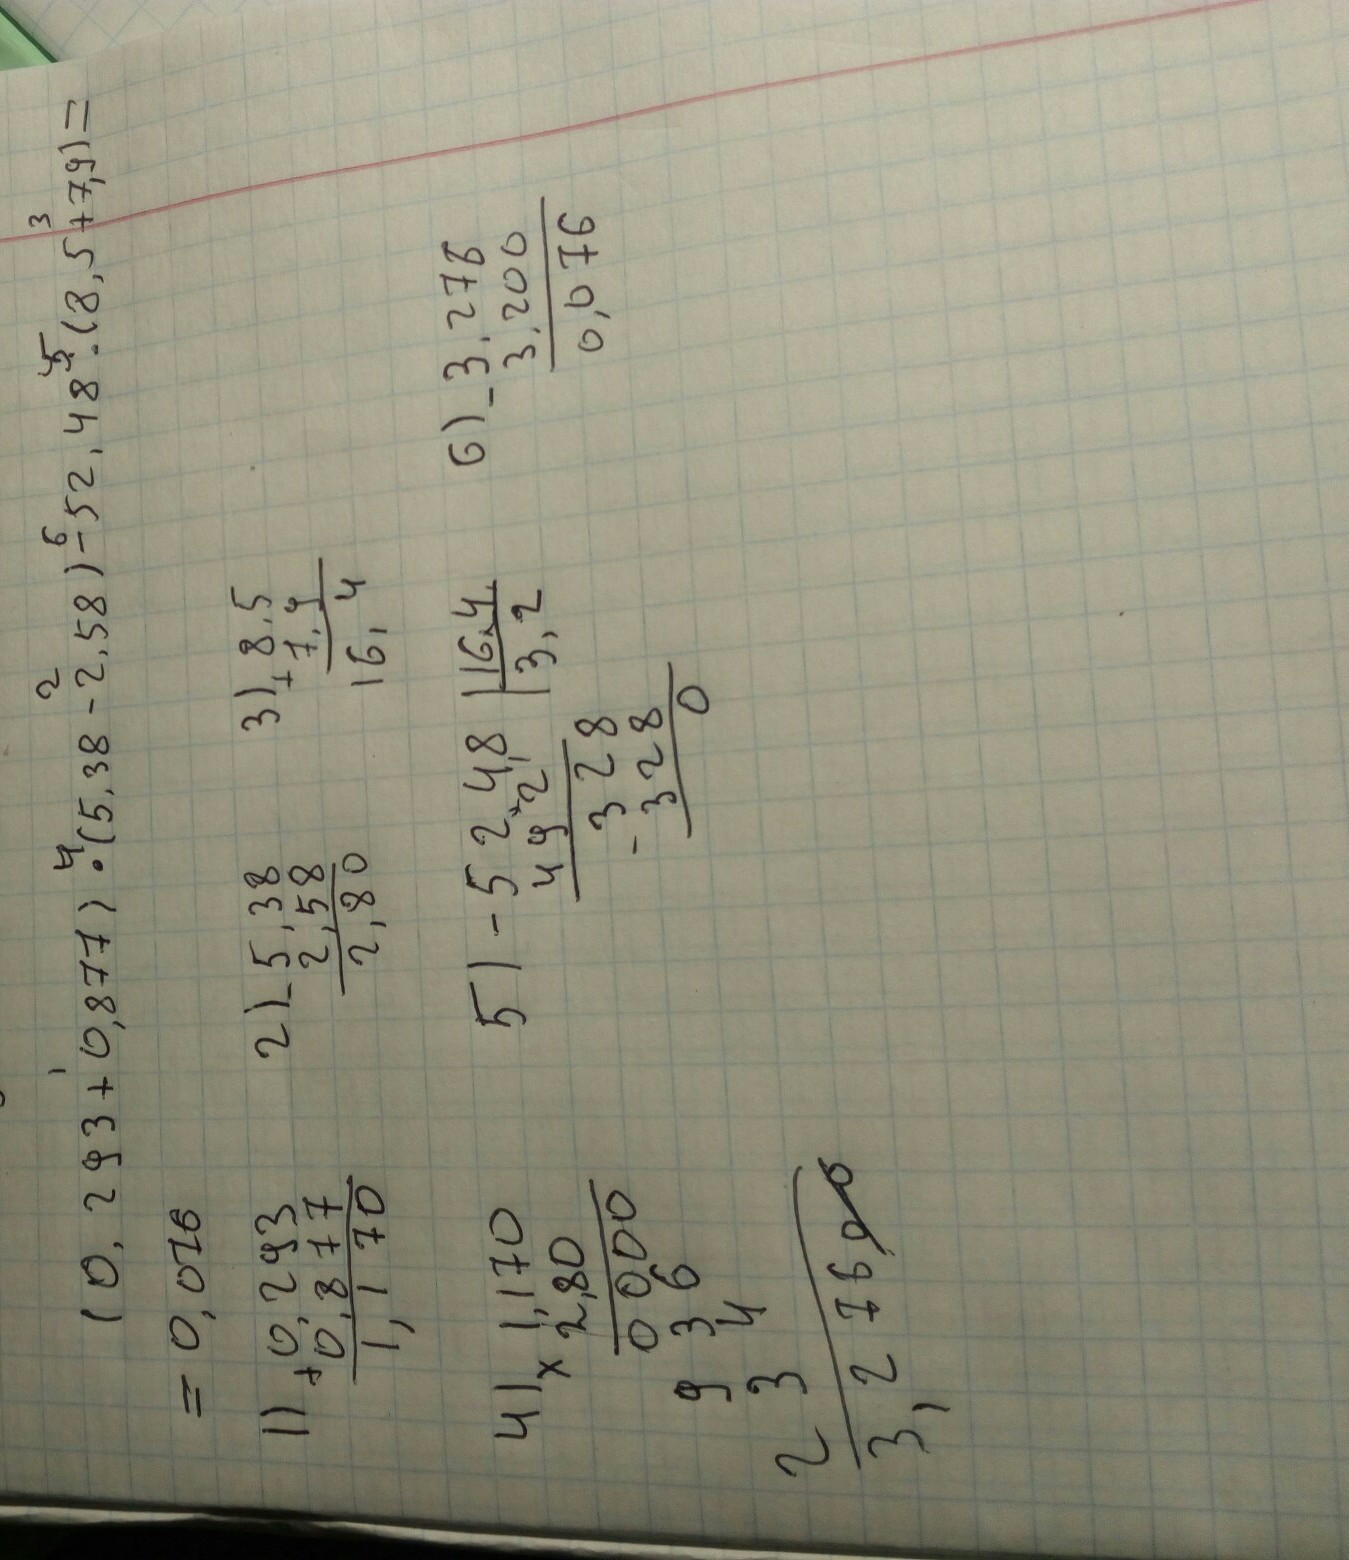 1 2 3
4 6 5
(0,293+0,877)·(5,38-2,58)-52,48:(8,5+7,9)=
=0,076
1) +0,293 2) -5,38 3) +8,5
0,877 2,58 7,9
1,170 2,80 16,4
4) × 1,170 5) -52,48 |16,4 6) -3,276
2,80 492 |3,2 3,200
0000 -328 0,076
936 328
234 0
3,27600